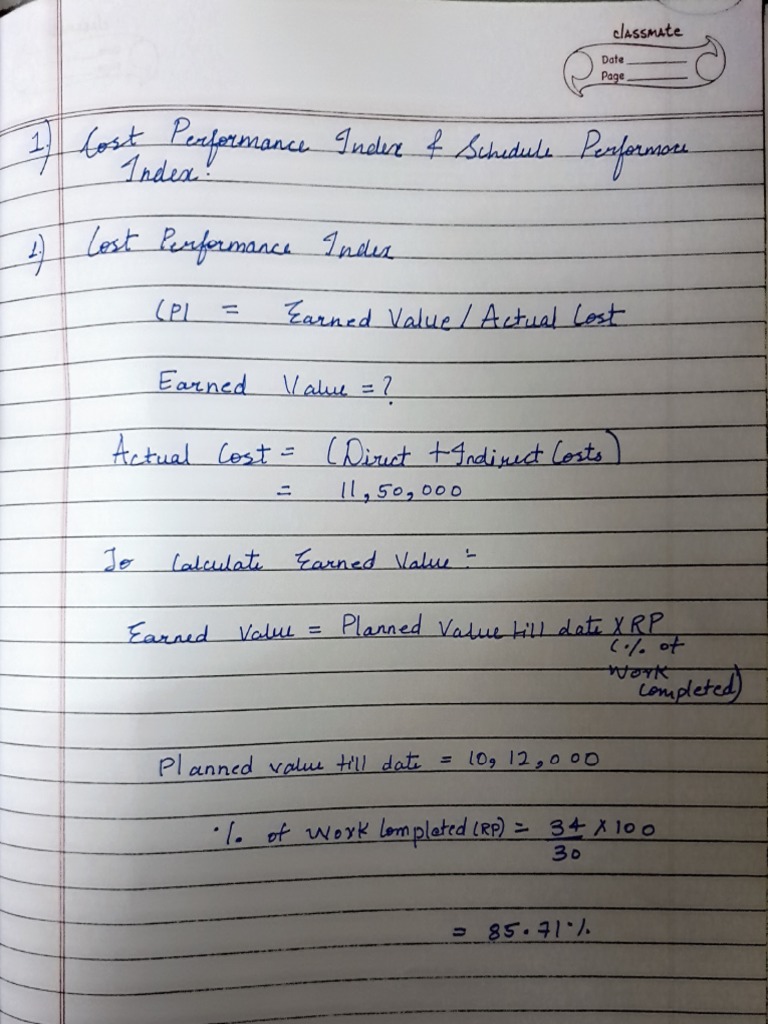 classmate
Date
Page
1) Cost Performance Index & Schedule Performance
Index:
1) Cost Performance Index
CPI = Earned Value / Actual Cost
Earned Value = ?
Actual Cost = (Direct + Indirect Costs)
= 11,50,000
To Calculate Earned Value :-
Earned Value = Planned Value till date X RP
(% of
Work
Completed)
Planned value till date = 10,12,000
% of Work Completed (RP) = 34 X 100
30
= 85.71%